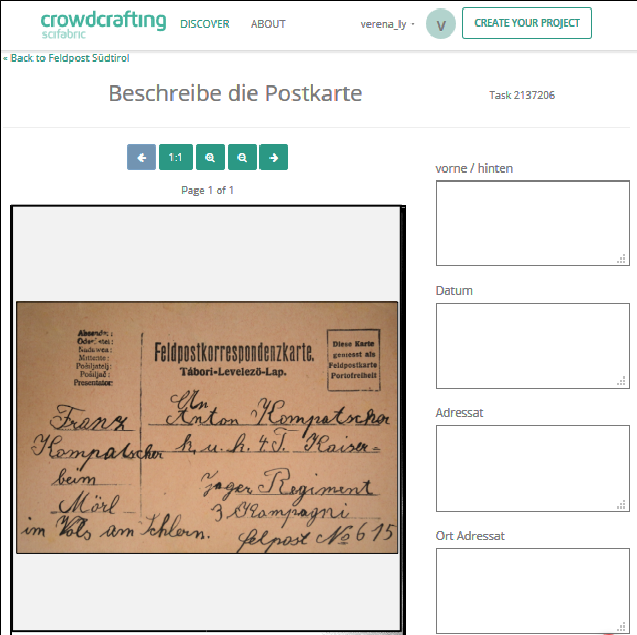 crowdcrafting
scifabric
DISCOVER
ABOUT
verena_ly
V
CREATE YOUR PROJECT
« Back to Feldpost Südtirol
Beschreibe die Postkarte
Task 2137206
1:1
Page 1 of 1
vorne / hinten
Datum
Adressat
Ort Adressat
Mittente:
Pošiljatelj:
Pošiljač:
Presentator:
Feldpostkorrespondenzkarte.
Tábori-Levelező-Lap.
Diese Karte
geniesst als
Feldpostkarte
Portofreiheit
Franz
Kompatscher
beim
Mörl
im Vols am Schlern.
An
Anton Kompatscher
k. u. k. 4 T. Kaiser=
Jager Regiment
3 Kompagni
felpost No 615